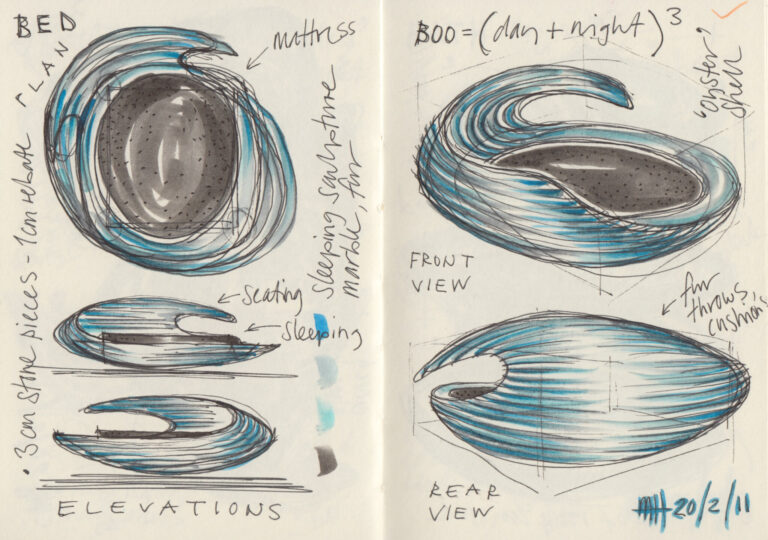 BED
PLAN
mattress
sleeping sculpture
marble, fur
• 3cm stone pieces - 1cm rebate
seating
sleeping
ELEVATIONS
BOO = (day + night)³
'oyster'
shell
FRONT
VIEW
fur
throws,
cushions
REAR
VIEW
MH 20/2/11